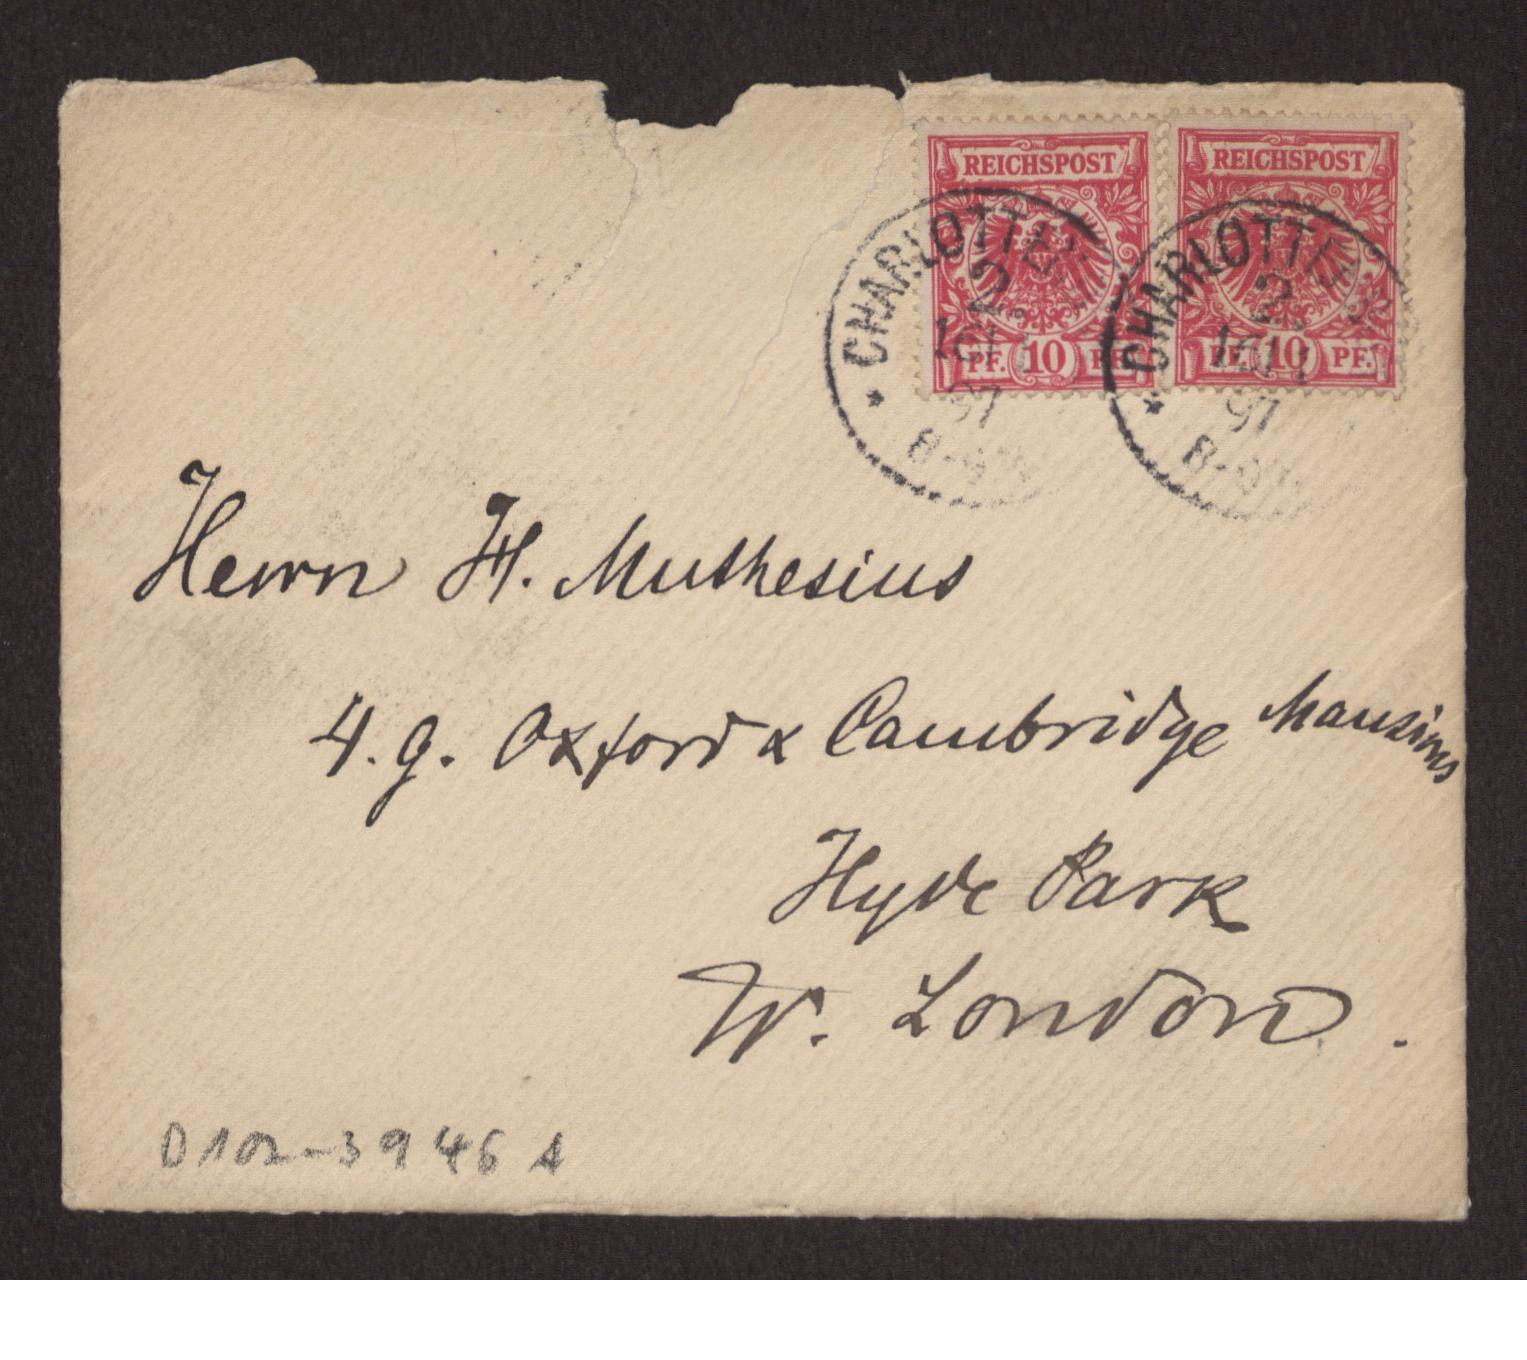 REICHSPOST REICHSPOST
PF. 10 PF. PF. 10 PF.
CHARLOTTENB
2.
97
8-9
CHARLOTTENB
2.
97
8-9
Herrn H. Muthesius
4. g. Oxford & Cambridge Mansions
Hyde Park
W. London.
D102-3946 A